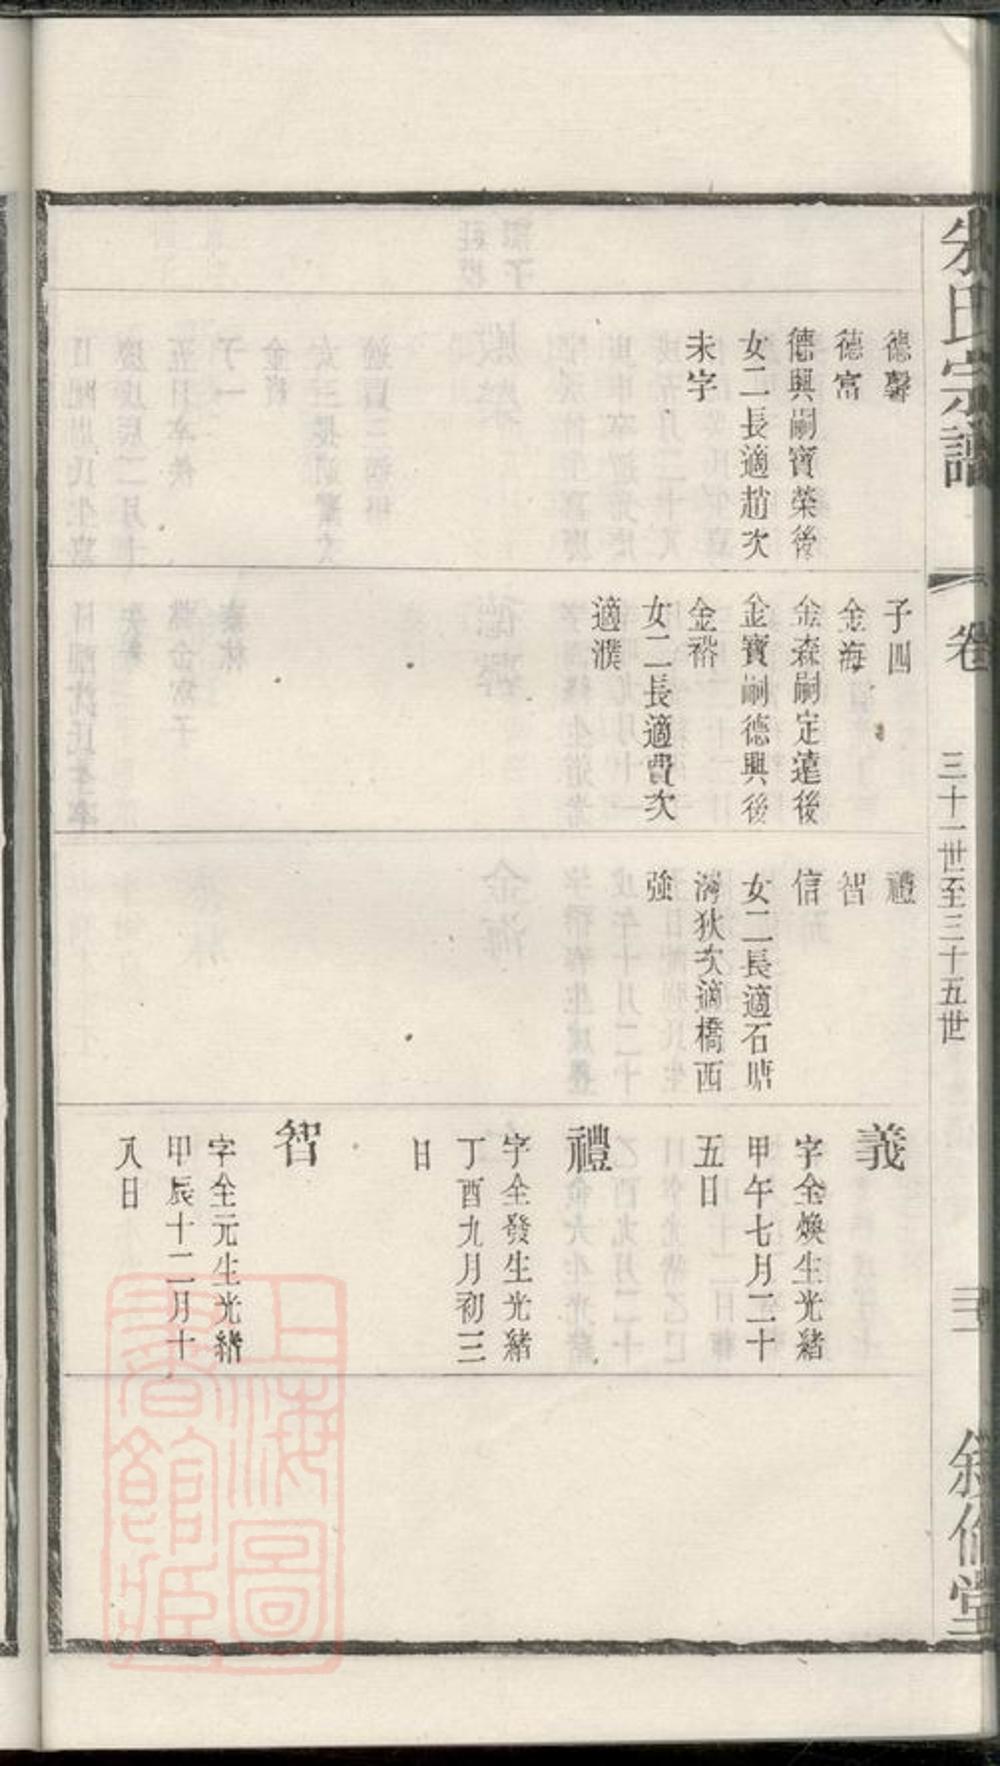 氏宗譜
卷
三十一世至三十五世
德馨
德富
德興嗣寶榮後
女二長適趙次
未字
子四
金海
金森嗣定蓮後
金寶嗣德興後
金裕
女二長適費次
適濮
禮
智
信
女二長適石塘
灣狄次適橋西
強
義
字全煥生光緒
甲午七月二十
五日
禮
字全發生光緒
丁酉九月初三
日
智
字全元生光緒
甲辰十二月十
八日
上海圖
書館藏